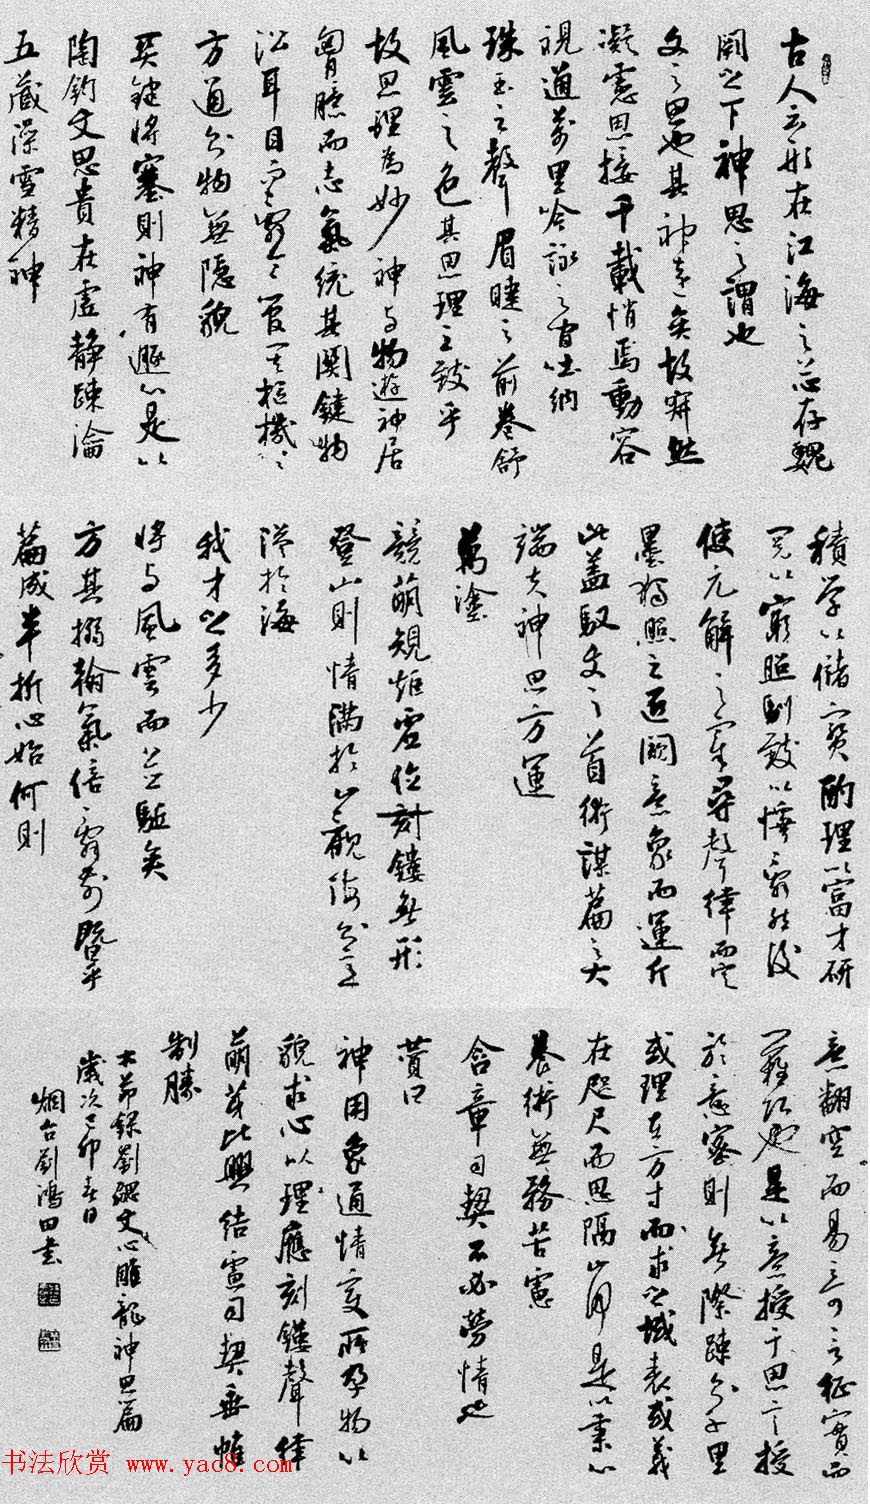 古人云形在江海之上心存魏
闕之下神思之謂也
文之思也其神遠矣故寂然
凝慮思接千載悄焉動容
視通萬里吟詠之間吐納
珠玉之聲眉睫之前卷舒
風雲之色其思理之致乎
故思理為妙神與物遊神居
胸臆而志氣統其關鍵物
沿耳目而辭令管其樞機樞機
方通則物無隱貌
關鍵將塞則神有遯心是以
陶鈞文思貴在虛靜疏瀹
五藏澡雪精神
積學以儲寶酌理以富才研
閱以窮照馴致以懌辭然後
使元解之宰尋聲律而定
墨獨照之匠闚意象而運斤
此蓋馭文之首術謀篇之大
端夫神思方運
萬塗
競萌規矩虛位刻鏤無形
登山則情滿於山觀海則意
溢於海
我才之多少
將與風雲而並驅矣
方其搦翰氣倍辭前暨乎
篇成半折心始何則
意翻空而易奇言征實而
難巧也是以意授于思言授
於意密則無際疏則千里
或理在方寸而求之域表或義
在咫尺而思隔山河是以秉心
養術無務苦慮
含章司契不必勞情也
贊曰
神用象通情變所孕物以
貌求心以理應刻鏤聲律
萌芽比興結慮司契垂帷
制勝
右節錄劉勰文心雕龍神思篇
歲次己卯春日
烟台劉鴻田書
书法欣赏 www.yac8.com